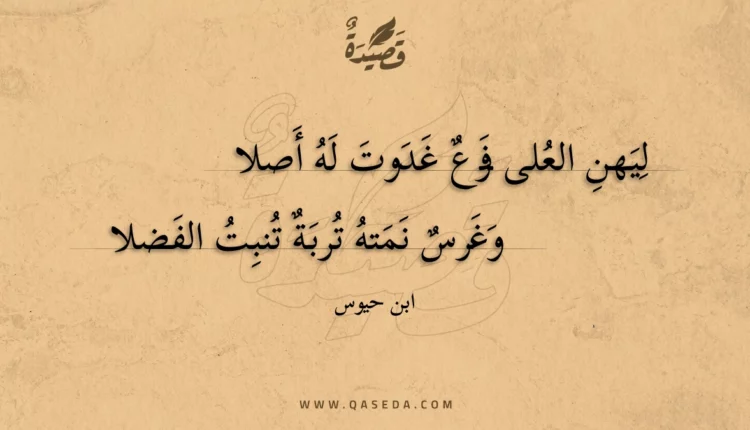 قَصِيْدَةٌ
لِيَهنِ العُلى فَرعٌ غَدَوتَ لَهُ أَصلا
وَغَرسٌ نَمَتهُ تُربَةٌ تُنبِتُ الفَضلا
ابن حيوس
WWW.QASEDA.COM